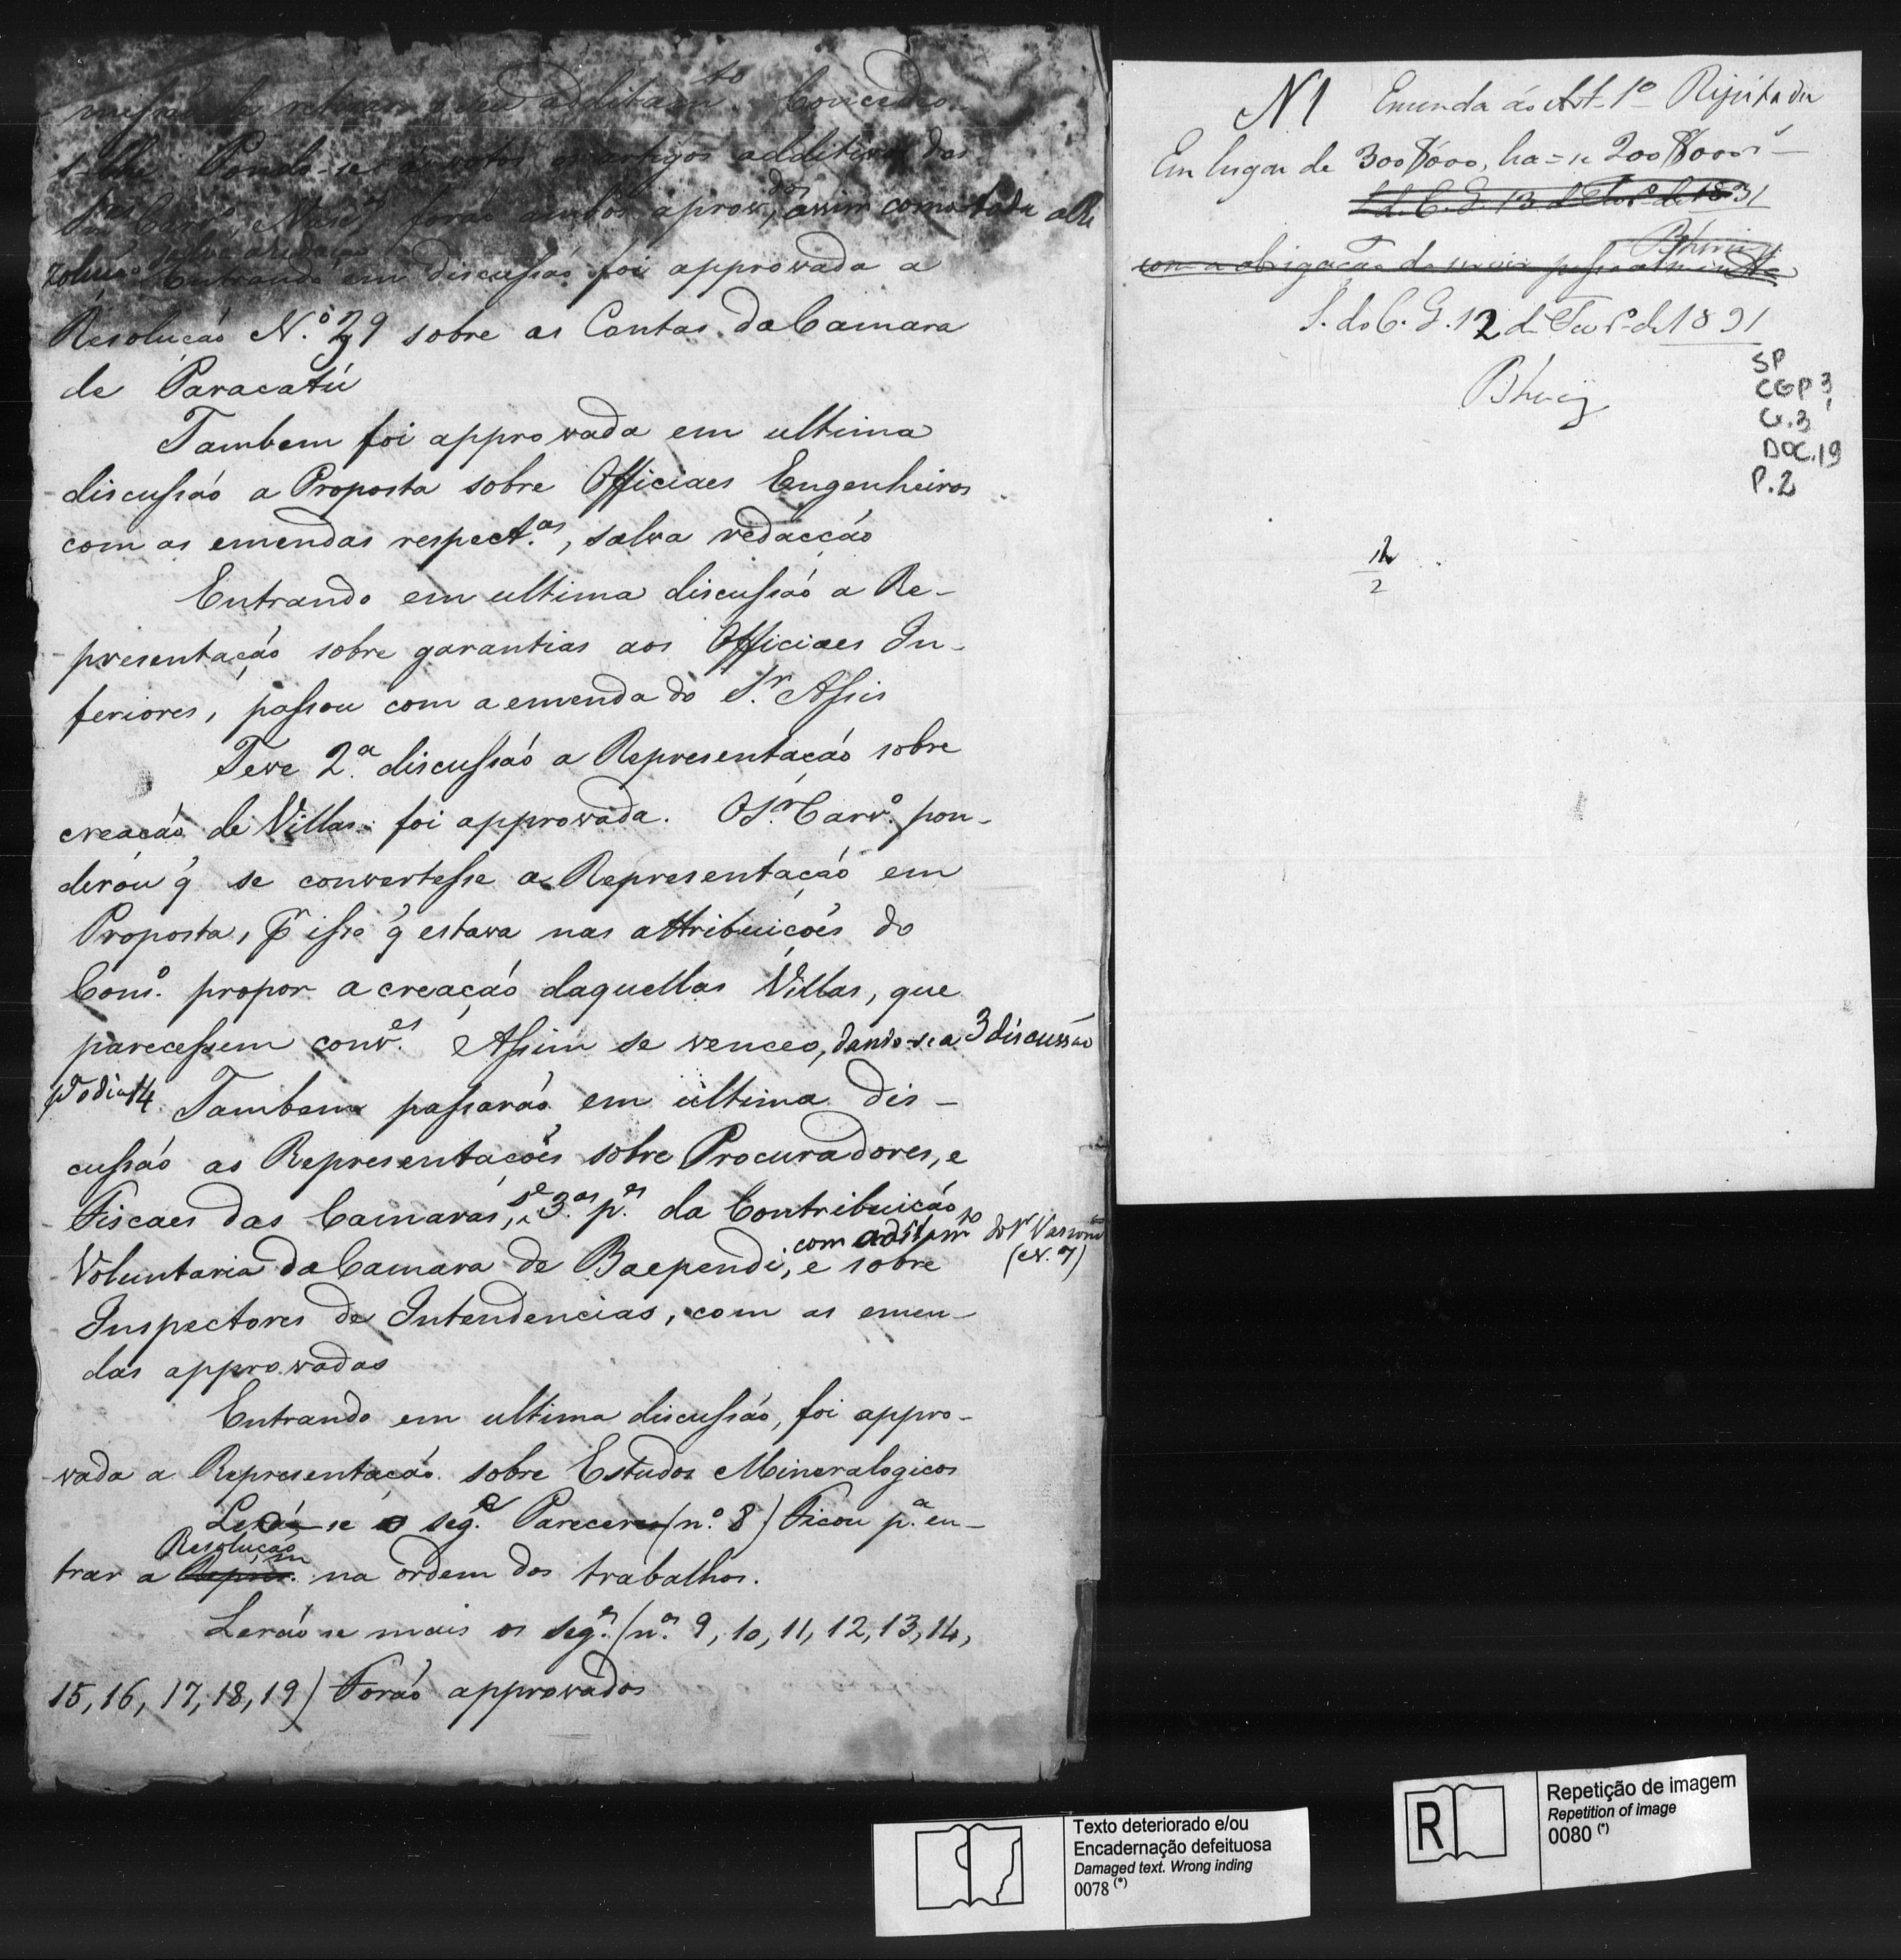 retirar o seu additam.to Concedeo-
s-lhe Pondo-se á votos os artigos additivos dos
forão ambos aprov.dos, assim como toda a Re
zolução salva a redacção Entrando em discussão foi approvada a
Resolução N.º 29 sobre as Contas da Camara
de Paracatú
Tambem foi approvada em ultima
discussão a Proposta sobre Officiaes Engenheiros
com as emendas respect.as, salva redacção
Entrando em ultima discussão a Re-
presentação sobre garantias aos Officiaes In-
feriores, passou com a emenda do S.r Assis
Teve 2.a discussão a Representação sobre
creação de Villas: foi approvada. O S.r Carv.o pon-
derou q̃ se convertesse a Representação em
Proposta, pr isso q̃ estava nas attribuições do
Cons.o propor a creação daquellas Villas, que
parecessem conv.es Assim se venceo, dando-se a 3 discussão
pa o dia 14. Tambem passarão em ultima dis-
cussão as Representações sobre Procuradores, e
Fiscaes das Camaras, se 3.as p.es da Contribuição
com aditam.to do Sr Vasconc.
Voluntaria da Camara de Baependi, e sobre (N. 7)
Inspectores de Intendencias, com as emen-
das approvadas
Entrando em ultima discussão, foi appro-
vada a Representação sobre Estudos Mineralogicos
Leo-se o seg.e Parecer (n.o 8) Ficou p.a en-
trar a Resolução Repres.m na ordem dos trabalhos.
Lerão se mais os seg.es (n.os 9, 10, 11, 12, 13, 14,
15, 16, 17, 18, 19) Forão approvados
N 1 Emenda ao Art. 1º Rejeitada
Em lugar de 300$000, lea=se 200$000rs
S. do C. G. 13 de Fev.o de 1831
Bhering
com a obrigação de servir pessoalmente
S. do C. G. 12 de Fev.o de 1831
Bhering
SP
CGP 3,
Cx.3
DOC.19
P.2
12
2
Texto deteriorado e/ou
Encadernação defeituosa
Damaged text. Wrong inding
0078 (*)
R
Repetição de imagem
Repetition of image
0080 (*)